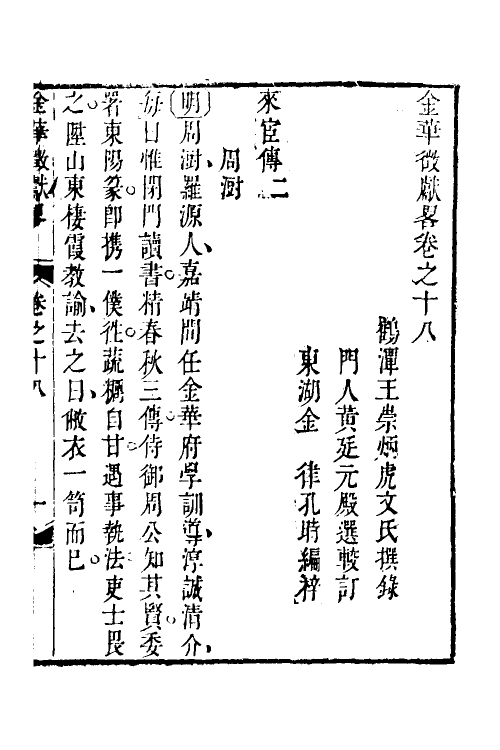 金華徵獻畧卷之十八
鶴潭王崇炳虎文氏撰錄
門人黃廷元殿選較訂
東湖金　律孔時編梓
來宦傳二
周澍
明周澍羅源人嘉靖間任金華府學訓導淳誠清介
每日惟閉門讀書精春秋三傳侍御周公知其賢委
署東陽篆卽携一僕徃蔬糲自甘遇事執法吏士畏
之陞山東棲霞教諭去之日敝衣一笥而已
金華徵獻畧
卷之十八
一